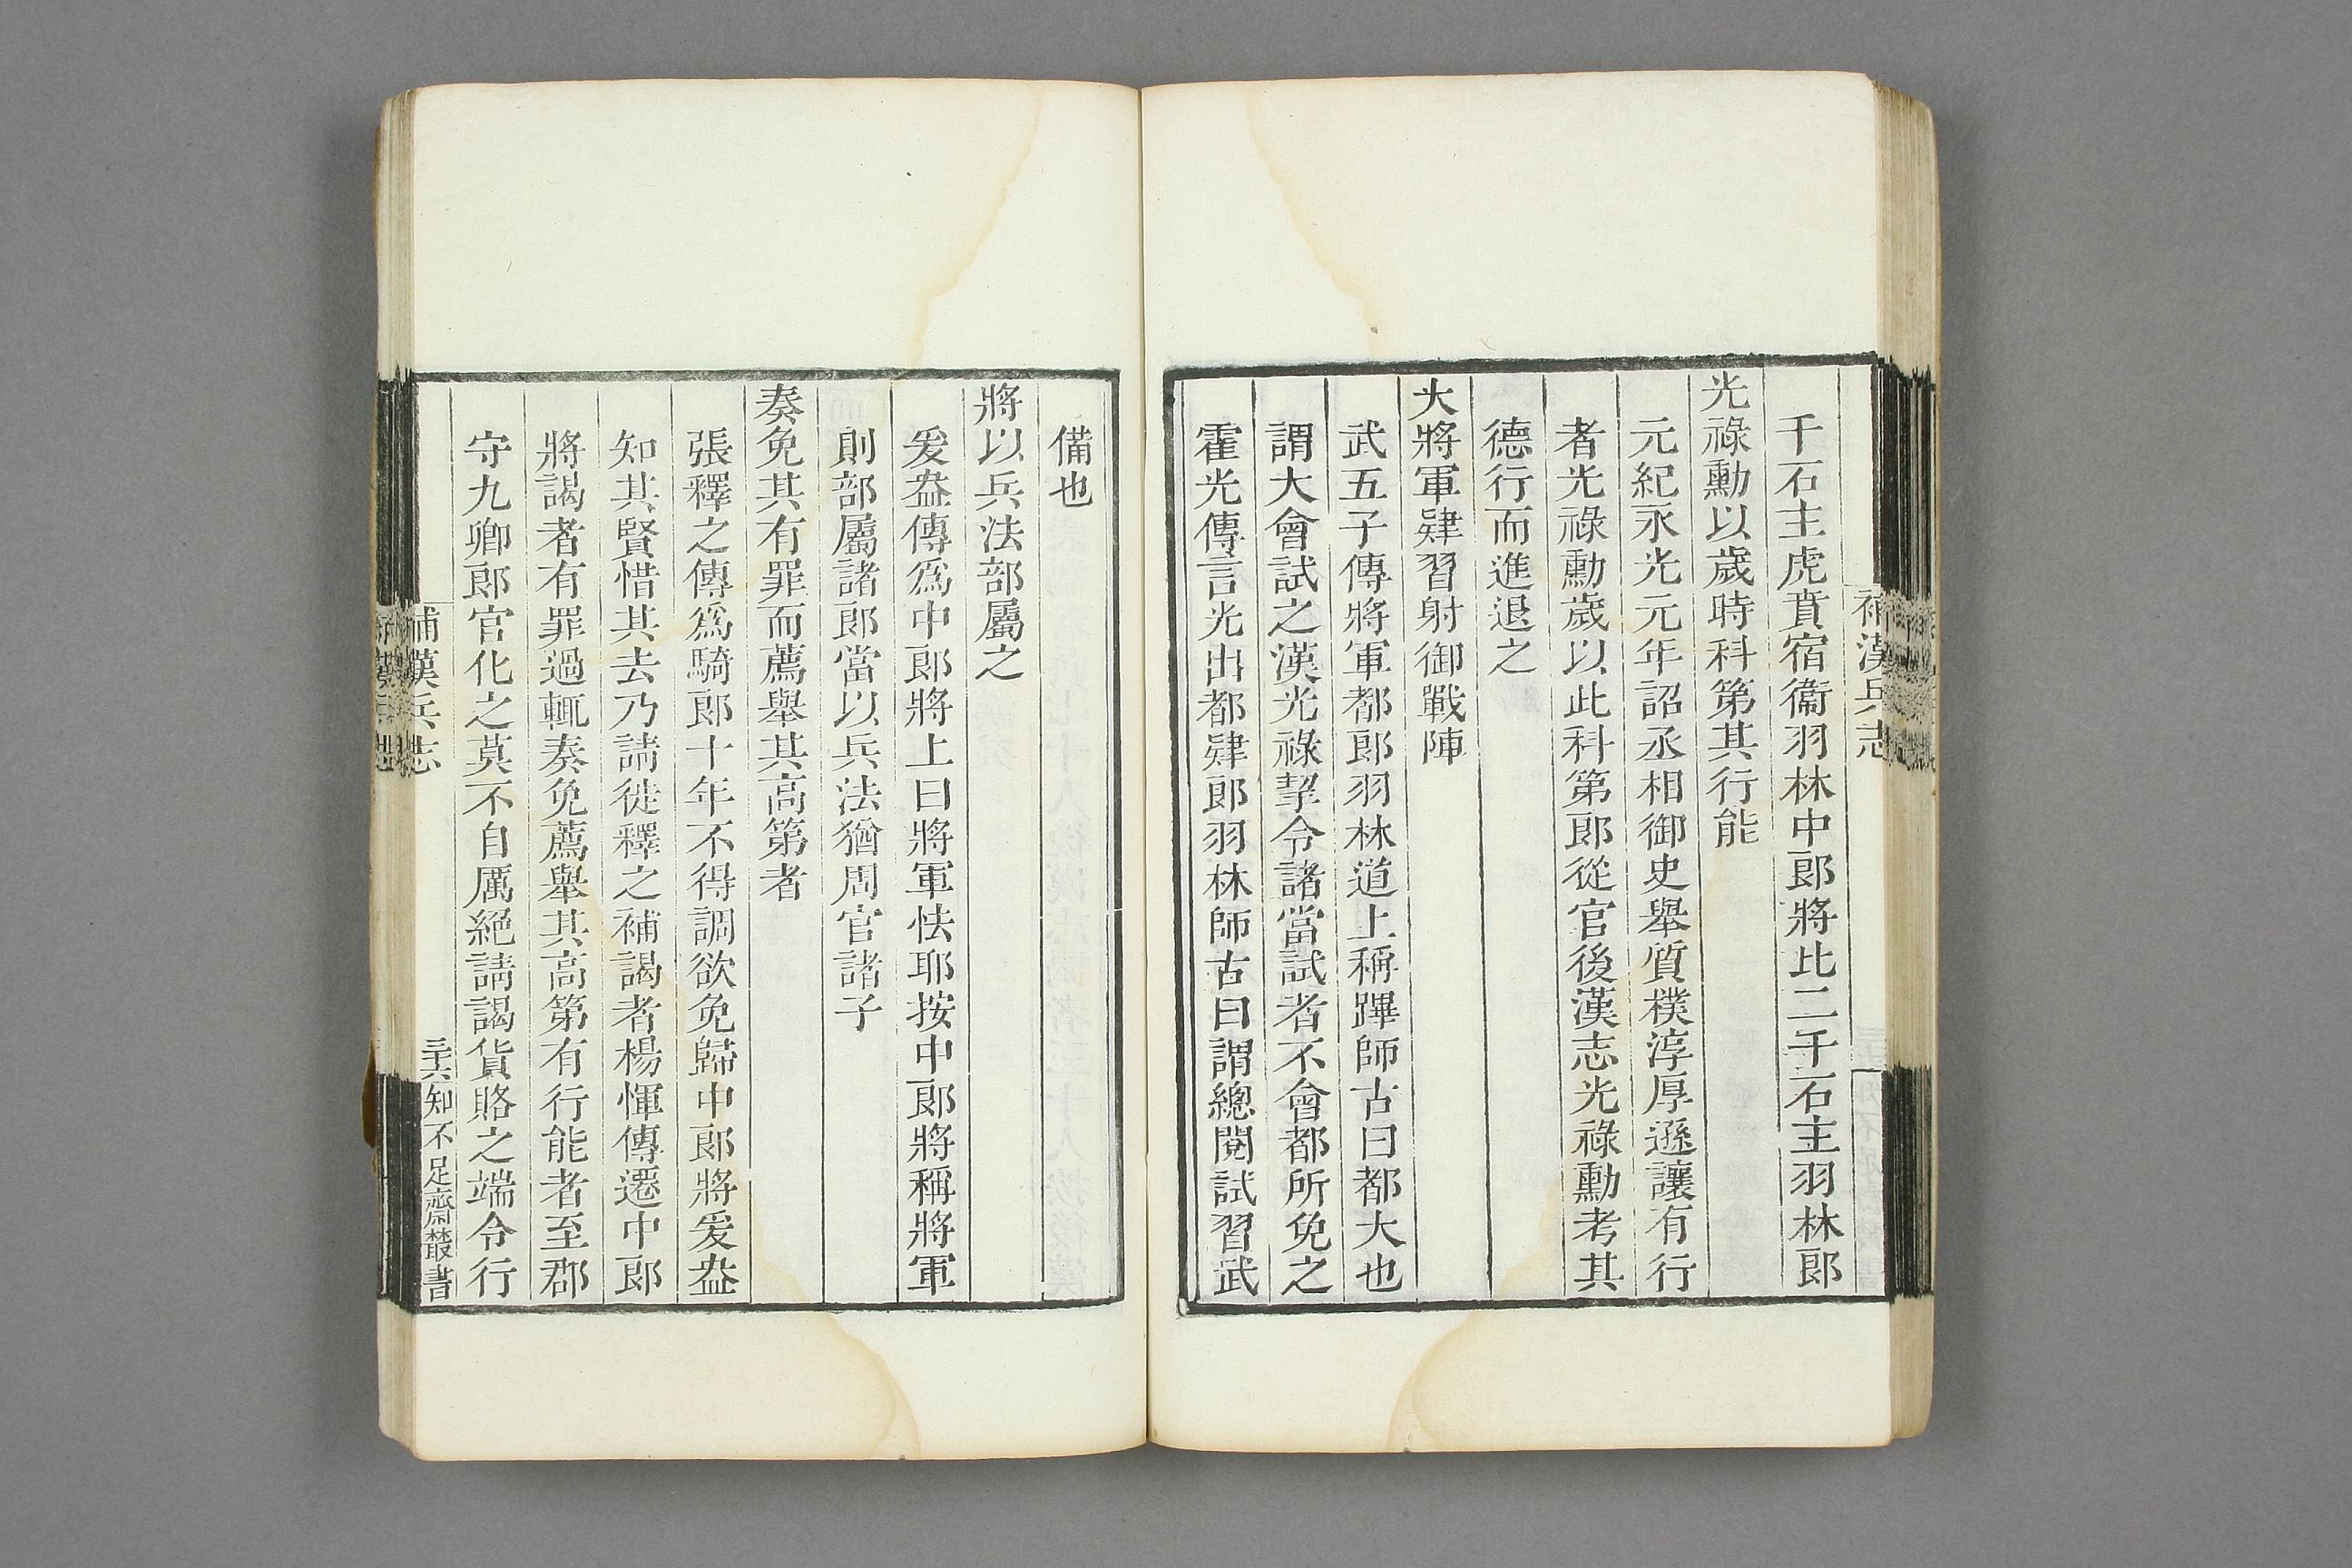 補漢兵志
千石主虎賁宿衞羽林中郎將比二千石主羽林郎
光祿勳以歲時科第其行能
元紀永光元年詔丞相御史舉質樸淳厚遜讓有行
者光祿勳歲以此科第郎從官後漢志光祿勳考其
德行而進退之
大將軍肄習射御戰陣
武五子傳將軍都郎羽林道上稱蹕師古曰都大也
謂大會試之漢光祿挈令諸當試者不會都所免之
霍光傳言光出都肄郎羽林師古曰謂總閱試習武
備也
將以兵法部屬之
爰盎傳爲中郎將上曰將軍怯耶按中郎將稱將軍
則部屬諸郎當以兵法猶周官諸子
奏免其有罪而薦舉其高第者
張釋之傳爲騎郎十年不得調欲免歸中郎將爰盎
知其賢惜其去乃請徙釋之補謁者楊惲傳遷中郎
將謁者有罪過輒奏免薦舉其高第有行能者至郡
守九卿郎官化之莫不自厲絕請謁貨賂之端令行
補漢兵志
二十六知不足齋叢書